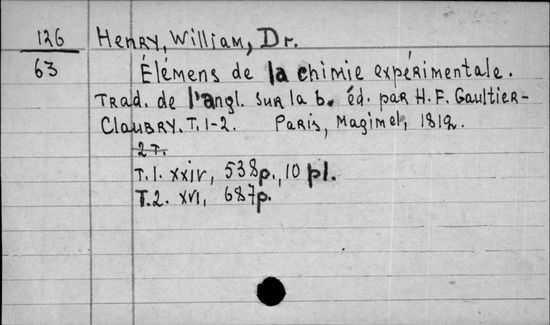 126 Henry, William, Dr.
63 Élémens de la chimie expérimentale.
Trad. de l'angl. sur la 6. éd. par H. F. Gaultier-
Claubry. T. 1-2. Paris, Magimel, 1812.
2 T.
T. 1. XXIV, 538p., 10 pl.
T. 2. XVI, 687p.